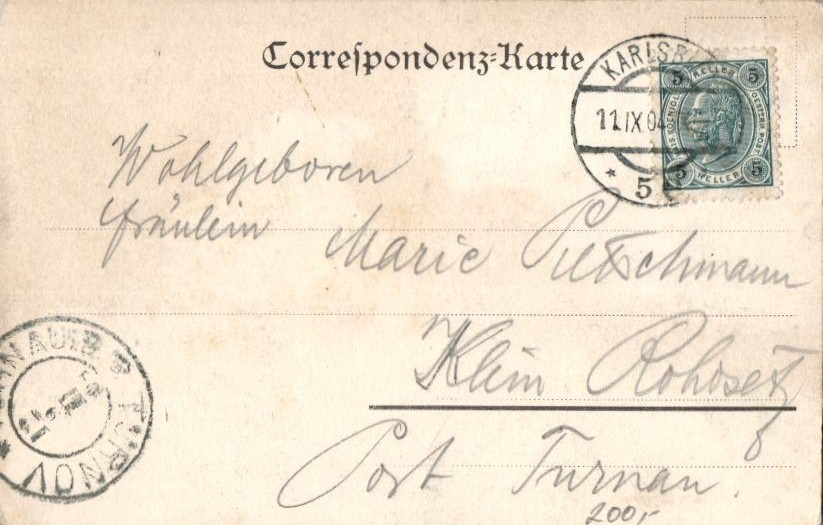 Correspondenz-Karte
KARLSB
11.IX.04
* 5
5 HELLER 5
5 HELLER 5
Wohlgeboren
Fräulein
Marie Pietschmann
Klein Rohosetz
Post Turnau.
200,-
TURNOV